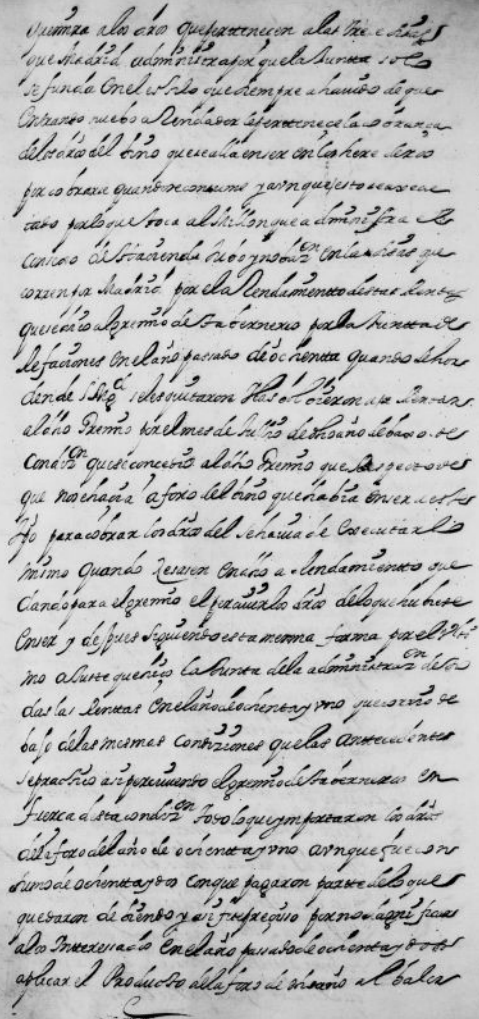 que mira a los dros que pertenecen a las
que Madrid administra por que la Junta solo
se funda en el estilo que siempre a havido de que
entrando nuebo arrendador le perttenece la cobranza
de los dros del bino que se alla enser en los
por cobrarse quando se consume y aunque esto
por lo que toca al Millon que administra el
Consejo de hacienda hubo en las sisas que
corren por Madrid por el arrendamiento destas Renttas
que se dio al gremio de tabernereos por la Juntta de
en el año passado de ochentta quando de hor
den de S Mgd se les quitaron
al dho Gremio por el mes de Jullio de dho año debaxo de
Condizon que se concedio al dho Gremio que respecto de
que no se hacia aforo del bino que habia enser
para cobrar los dros del se havia de executar lo
mismo quando zesasen en dho arrendamientto que
dando para el gremio el percivir los dros de lo que hubiese
enser y despues siguiendo esta misma forma por el ulti
mo asiste que hizo la Junta de la administrazon de to
das las Renttas en el año de ochenta y uno que corrio de
bajo de las mesmas Condiziones que las antecedentes
se practico asi percibiendo el gremio de taberneros en
fuerca desta condizon todo lo que ymportaron los dros
del aforo del año de ochentta y uno aunque fue con
sumo de ochentta y dos con que pagaron partte de lo que
quedaron debiendo y asi fue preçiso por no damnificar
a los Interesados en el año passado de ochenta y dos
aplicar el Producto del aforo de dho año al